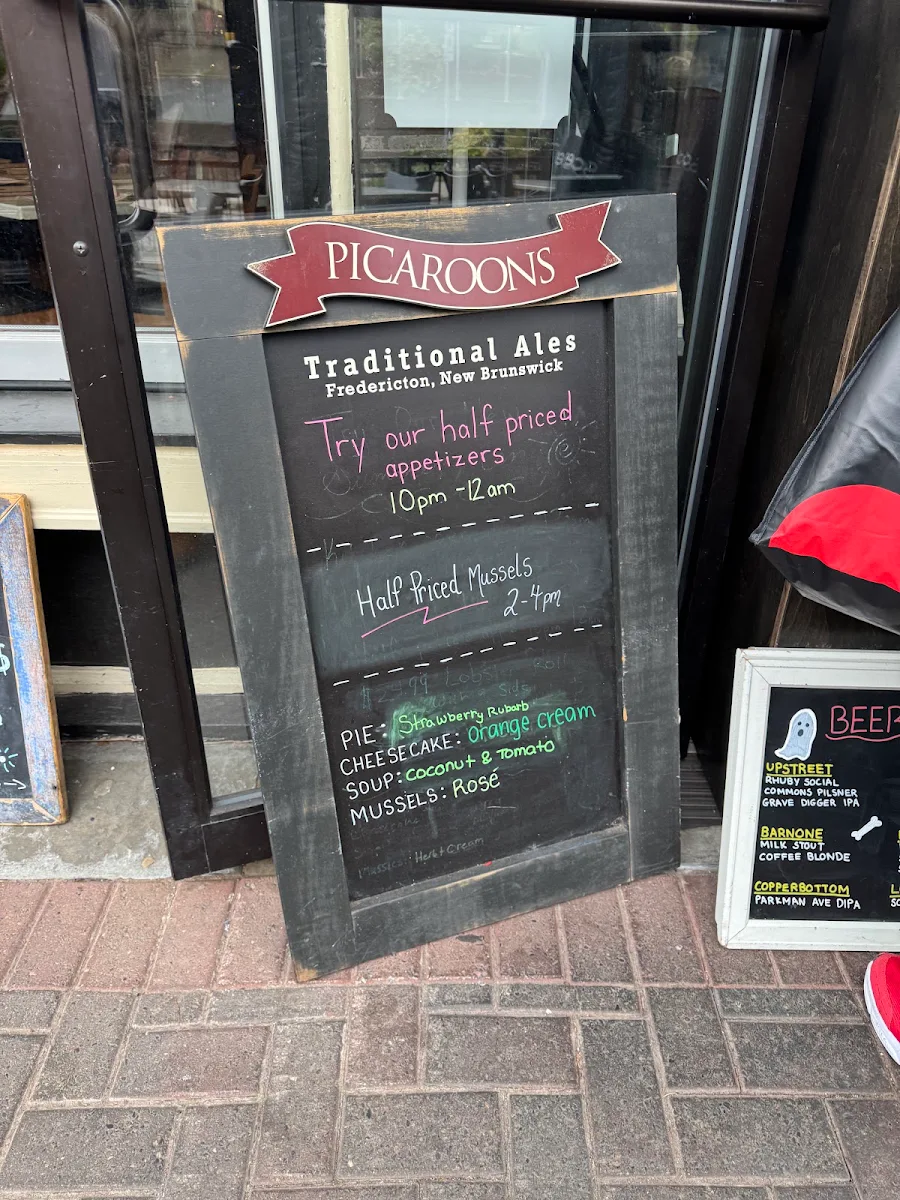 PICAROONS
Traditional Ales
Fredericton, New Brunswick
Try our half priced
appetizers
10pm - 12am
Half Priced Mussels
2-4pm
PIE: Strawberry Rubarb
CHEESECAKE: orange cream
SOUP: coconut & Tomato
MUSSELS: Rosé
Herb & Cream
BEER
UPSTREET
RHUBY SOCIAL
COMMONS PILSNER
GRAVE DIGGER IPA
BARNONE
MILK STOUT
COFFEE BLONDE
COPPERBOTTOM
PARKMAN AVE DIPA
$